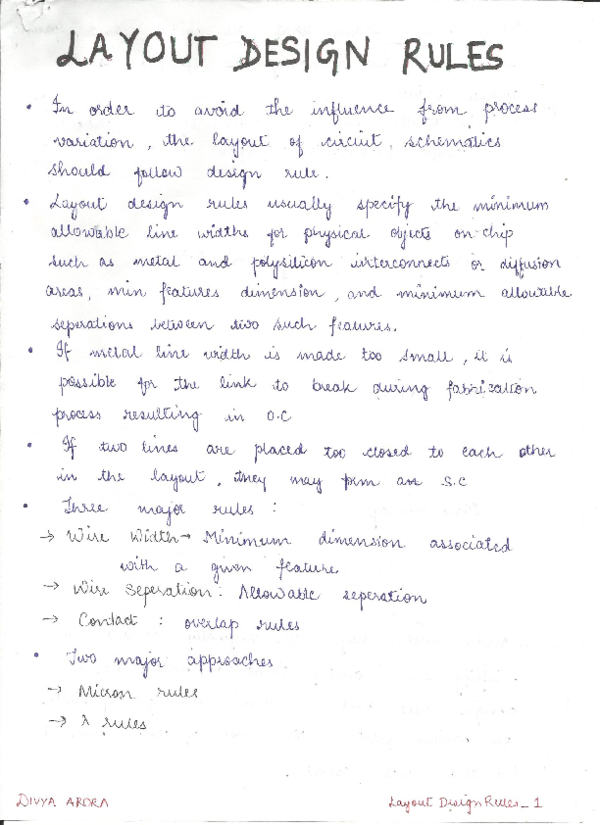 LAYOUT DESIGN RULES
• In order to avoid the influence from process
variation, the layout of circiut schematics
should follow design rule.
• Layout design rules usually specify the minimum
allowable line widths for physical objects on-chip
such as metal and polysilicon interconnects or diffusion
areas, min features dimension, and minimum allowable
seperations between two such features.
• If metal line width is made too small, it is
possible for the link to break during fabrication
process resulting in O.C
• If two lines are placed too closed to each other
in the layout, they may form an S.C
• Three major rules :
→ Wire Width → Minimum dimension associated
with a given feature
→ Wire Seperation : Allowable seperation
→ Contact : overlap rules
• Two major approaches
→ Micron rules
→ λ rules
DIVYA ARORA
Layout Design Rules_1